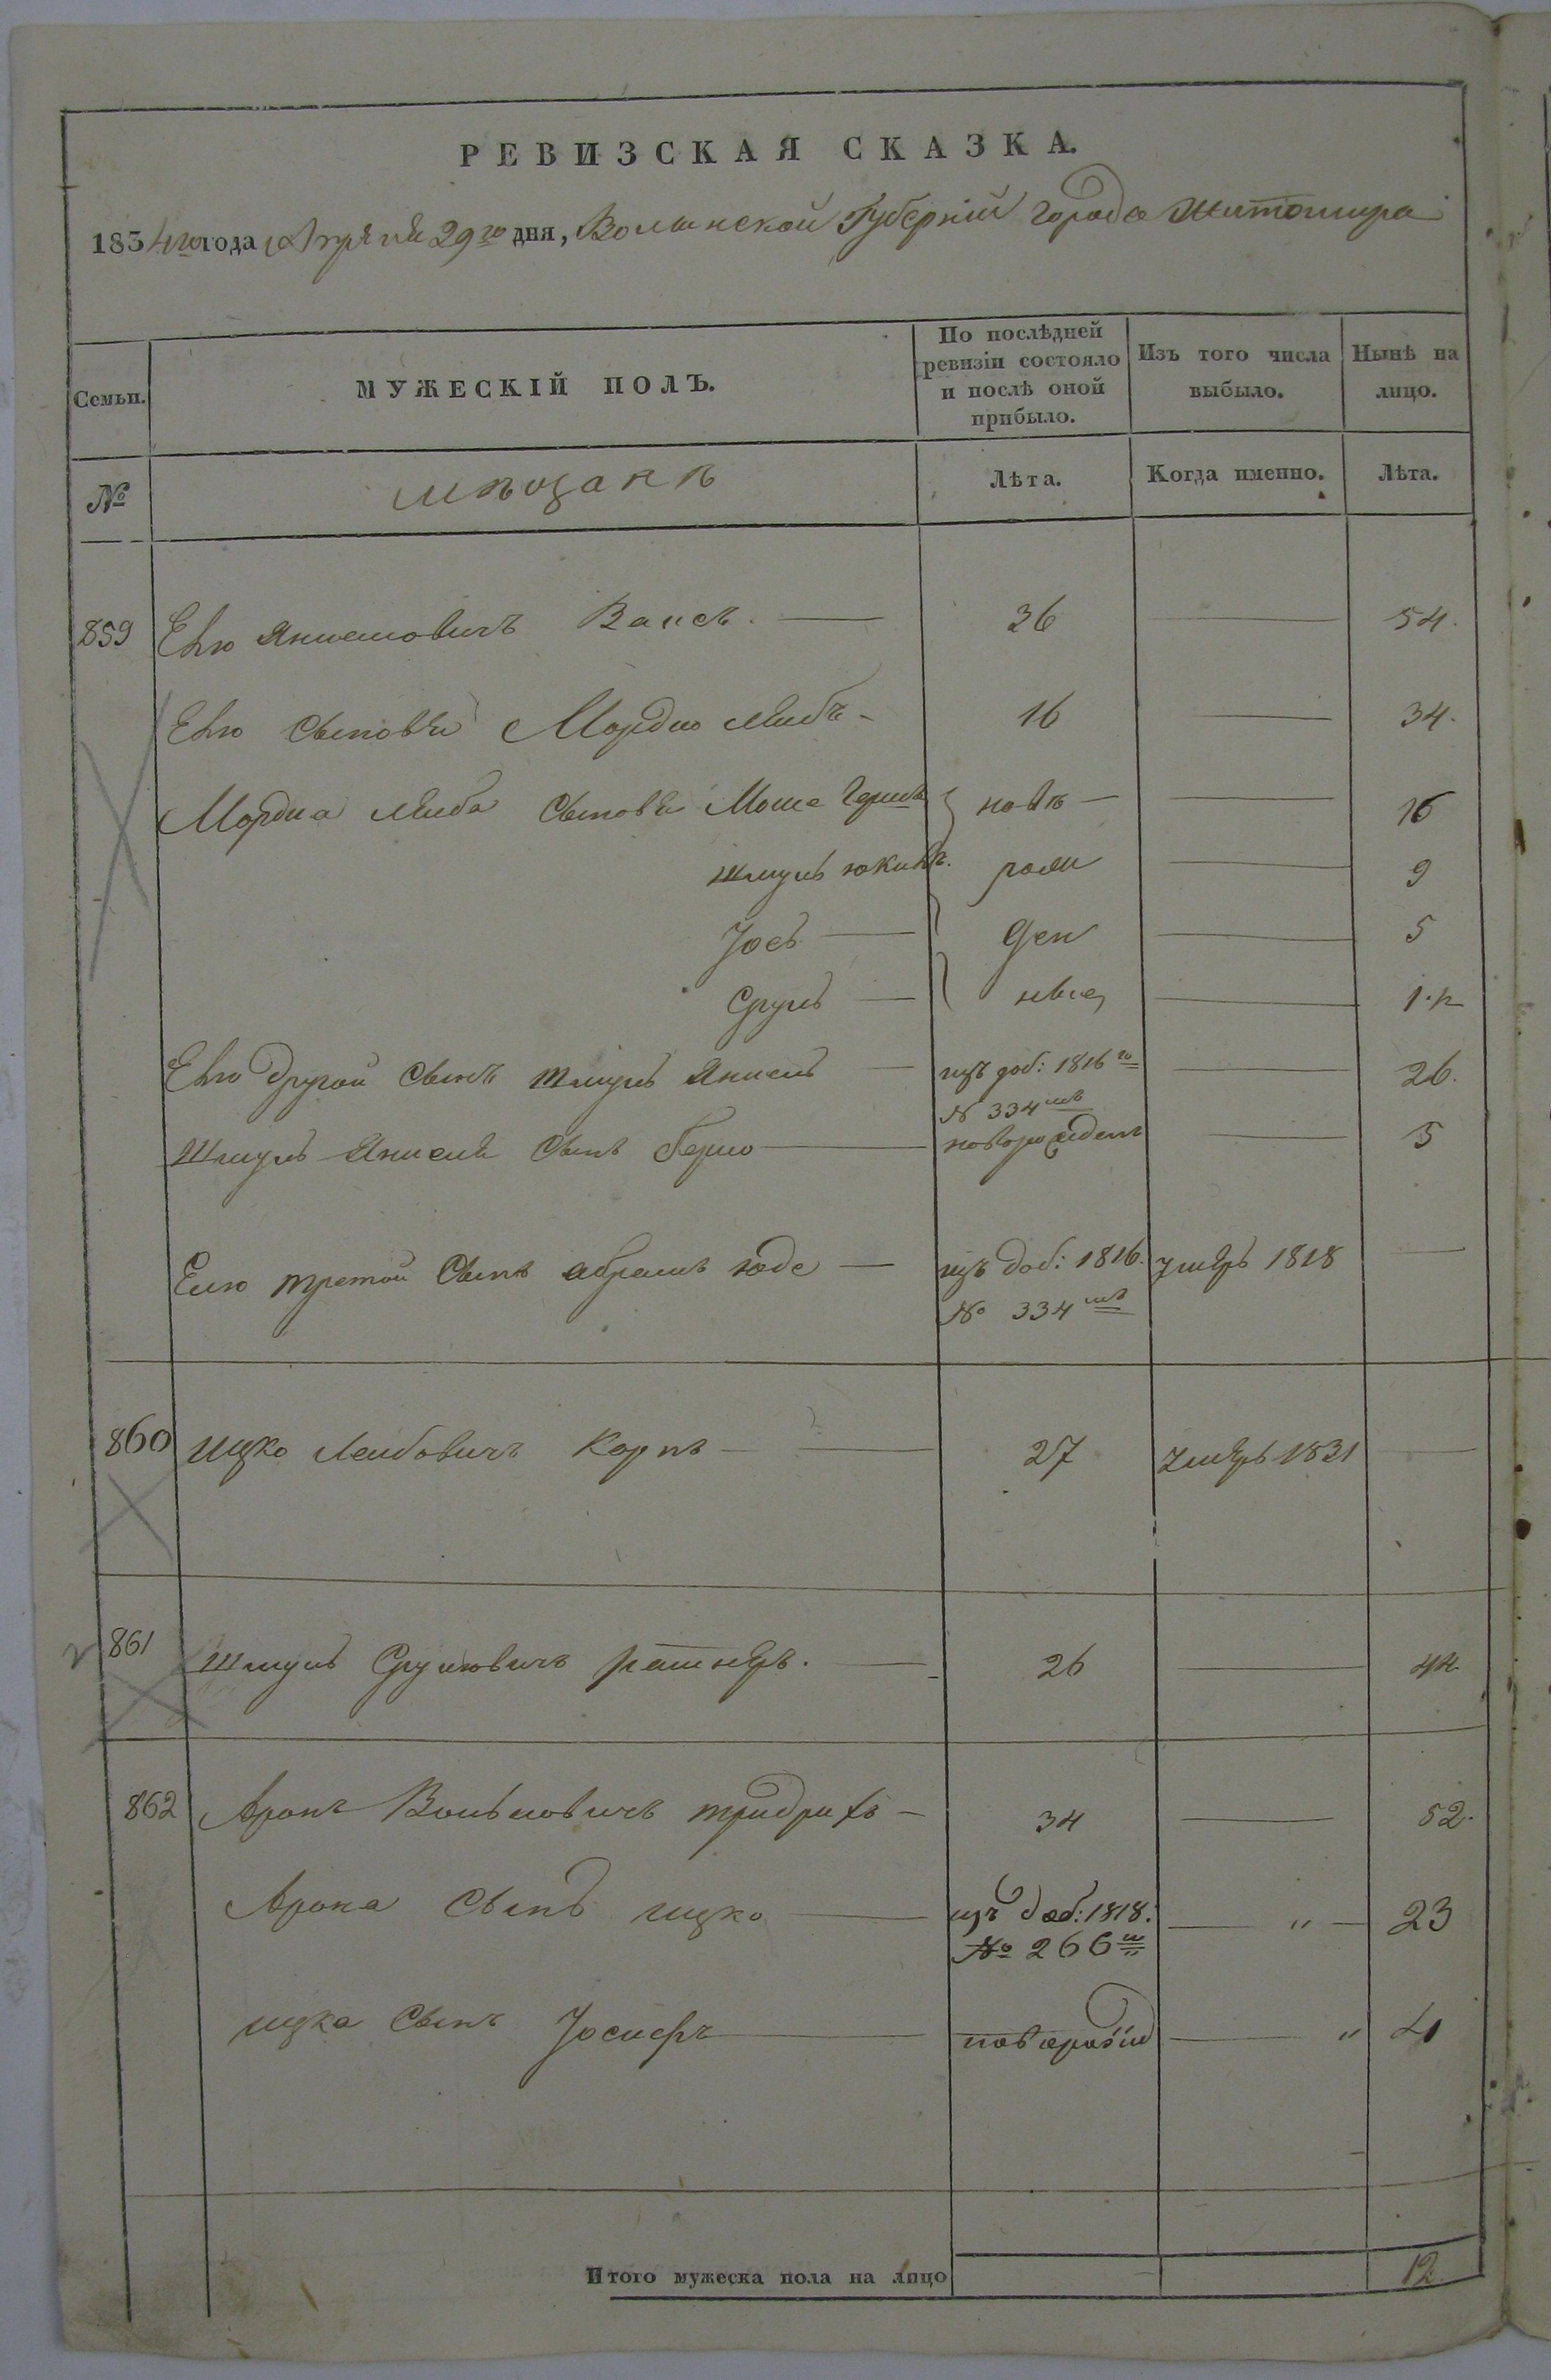 РЕВИЗСКАЯ СКАЗКА.
1834го года Апреля 29го дня, Волынской Губерніи города Житомира
Семьи.
МУЖЕСКІЙ ПОЛЪ.
По послѣдней ревизіи состояло и послѣ оной прибыло.
Изъ того числа выбыло.
Нынѣ на лицо.
№
мѣщанъ
Лѣта.
Когда именно.
Лѣта.
859 Елю Янкелевичъ Вайсъ. 36 54.
Елю сыновья Мордко Лейбъ 16 34.
Мордка Лейба сыновья Мошко Гершъ ново 16
Шмуль рож 9
Іось ден 5 
Сруль ные 1.
Елю другой сынъ Шмуль Янкель изъ доб: 1816го № 334мъ 26.
Шмуль Янкеля сынъ Берко новорожденъ 5
Елю третой сынъ Абрамъ Юде изъ доб: 1816. № 334мъ умеръ 1818
860 Ицко Лейбовичъ Корнъ 27 умеръ 1831
861 Шмуль Срулевичъ Ратнеръ. 26 44
862 Аронъ Вольковичъ 34 52.
Арона сынъ Ицко изъ доб: 1818. № 266м " 23
Ицка сынъ Іосифъ " 4
Итого мужеска пола на лицо 12.